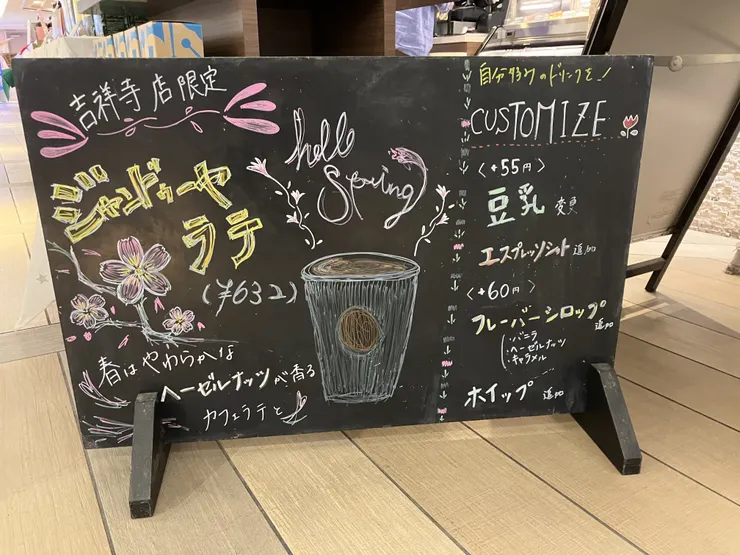 吉祥寺店限定
ジャンドゥーヤ
ラテ
(¥632)
hello
Spring
春はやわらかな
ヘーゼルナッツが香る
カフェラテと
自分好みのドリンクを!
CUSTOMIZE
<+55円>
豆乳 変更
エスプレッソショット 追加
<+60円>
フレーバーシロップ 追加
・バニラ
・ヘーゼルナッツ
・キャラメル
ホイップ 追加